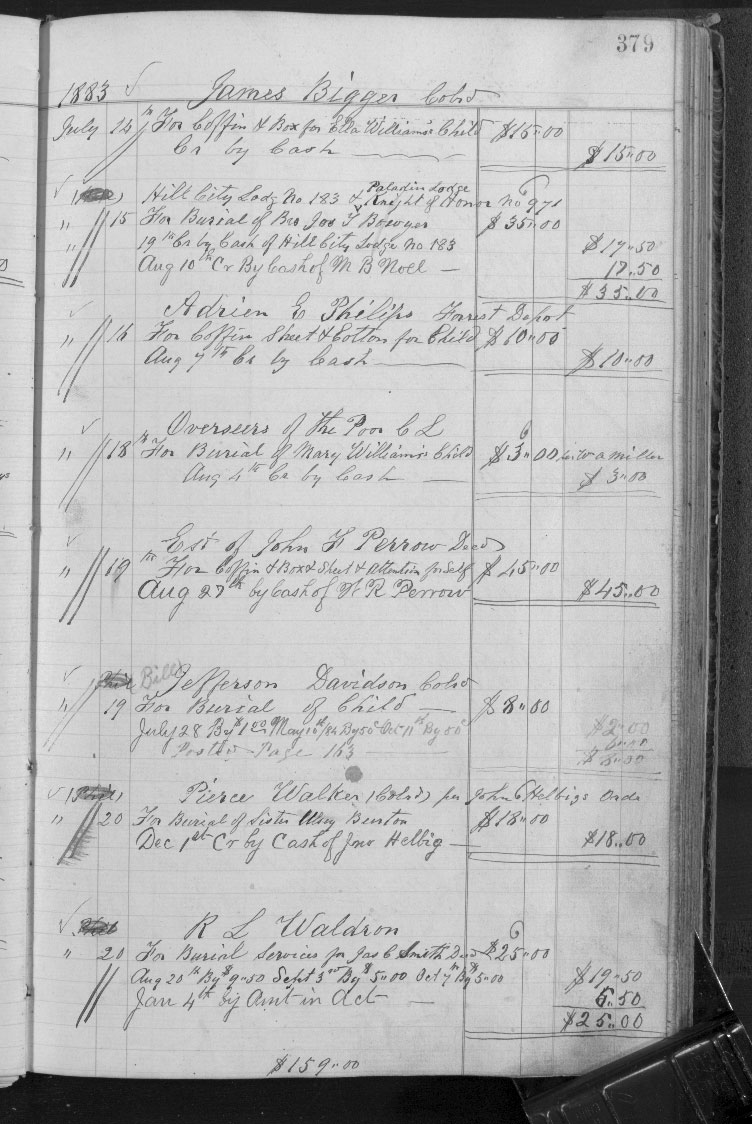 379
1883 James Bigger Cold
July 14th For Coffin & Box for Ella William's Child $15"00
Cr by Cash $15"00
Paladin Lodge
Hill City Lodg No 183 & Knight of Honor No 971
" 15 For Burial of Bro Jos T Bowyer $35"00
" 19th Cr by Cash of Hill City Lodge No 183 $17"50
Aug 10th Cr By Cash of M B Noell 17.50
$35"00
Adrien E Philips Forrest Depot
" 16 For Coffin Sheet & Cotton for Child $10"00
Aug 7th Cr by Cash $10"00
Overseers of the Poor C L
" 18th For Burial of Mary William's Child $3"00 Miller
Aug 4th Cr by Cash $3"00
Est of John F Perrow Decd
" 19th For Coffin & Box & Sheet & Attention for Self $45"00
Aug 27th by Cash of R Perrow $45"00
Bill
Jefferson Davidson Cold
" 19 For Burial of Child $8"00
July 28 By $1.00 May 10th/84 By 50c Oct 11th By 50c $2"00
Posted Page 163 6"00
$8"00
Pierce Walker (Cold) per John Helbigs Order
" 20 For Burial of Sister Burton $18"00
Dec 1st Cr by Cash of Jno Helbig $18"00
R L Waldron
" 20 For Burial Services for Jas C Smith Decd $25"00
Aug 20th By $9"50 Sept 3rd By $5"00 Oct 7th By $5"00 $19"50
Jan 4th by Amt in Act 5"50
$25"00
$159"00